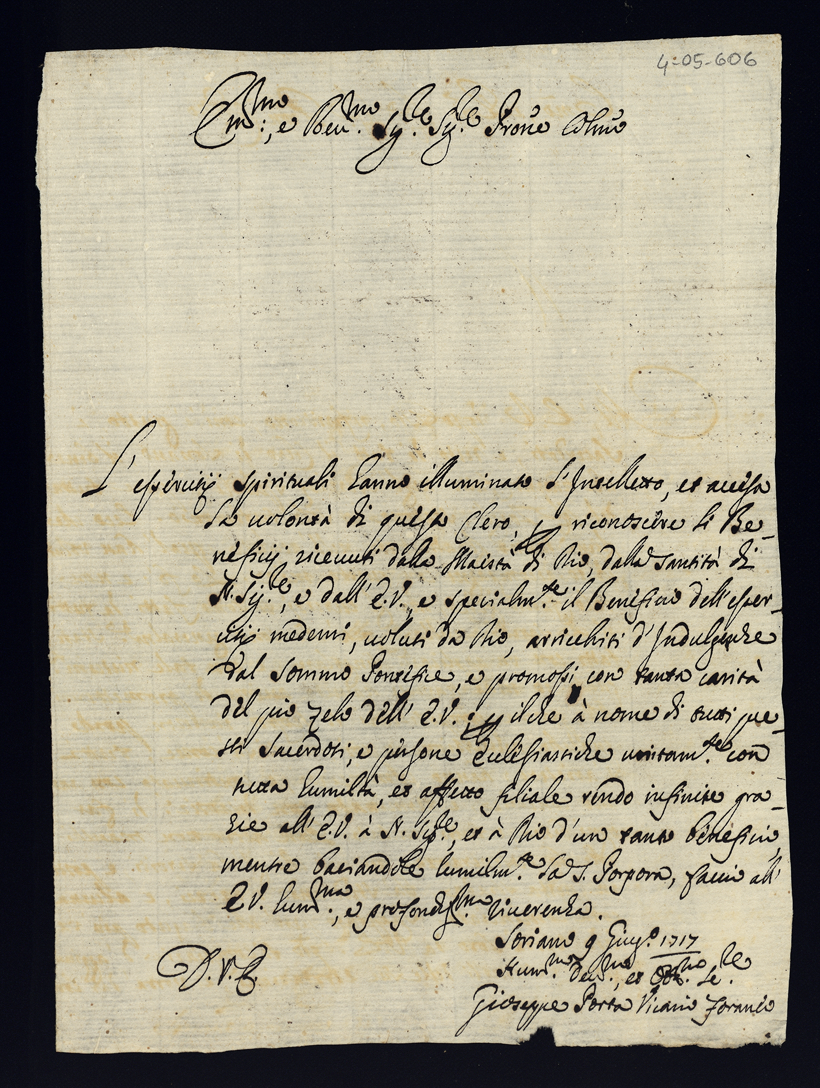 4-05-606
Em.mo, e Reu.mo Sig.re Sig.re Prone Colmo
L'esercitij spirituali hanno illuminato l'Intelletto, et accesa
la uolontà di questo Clero, per riconoscere li Be-
neficij riceuuti dalla Maestà di Dio, dalla Santità di
N. Sig.re, e dall'E.V., e specialm.te il Beneficio dell'eser-
citij medemi, uoluti da Dio, arricchiti d'Indulgenze
dal Sommo Pontefice, e promossi con tanta carità
del pio zelo dell'E.V.; per ilche à nome di tutti que-
sti Sacerdoti, e persone Ecclesiastiche unitam.te con
tutta humiltà, et affetto filiale rendo infinite gra-
zie all'E.V. à N. Sig.re, et à Dio d'un tanto beneficio,
mentre baciandole humilm.te la S. Porpora, faccio all'
E.V. hum.ma, e profondiss.ma riuerenza.
Soriano 9 Giug.o 1717
D.V.E.
Hum.mo Deu.mo, et Obb.mo Se.re
Gioseppe Porta Vicario Foraneo